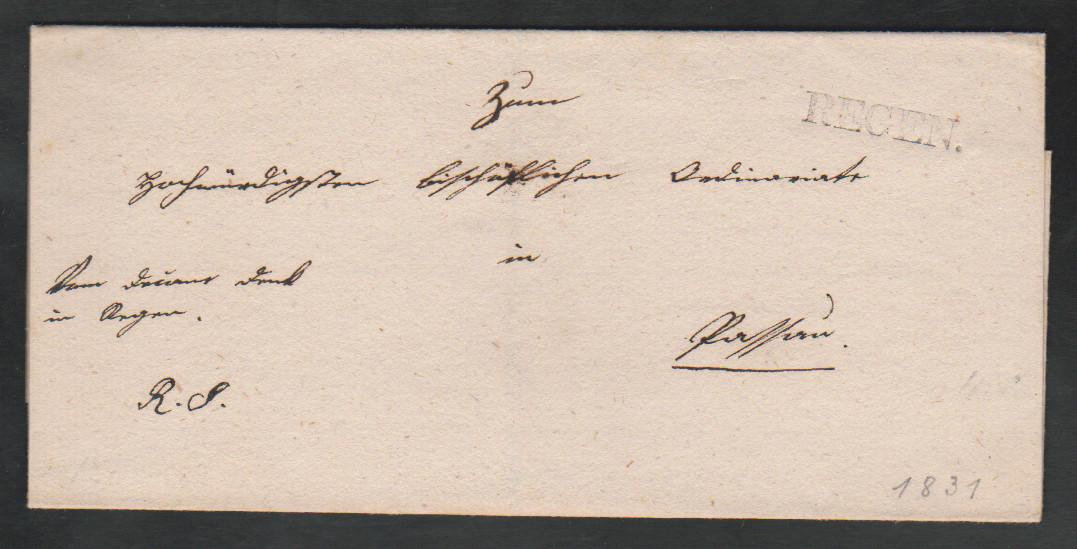 Zum
REGEN.
Hochwürdigsten bischöflichen Ordinariate
in
Vom Decant Denk
in Regen.
Passau.
R. S.
1831